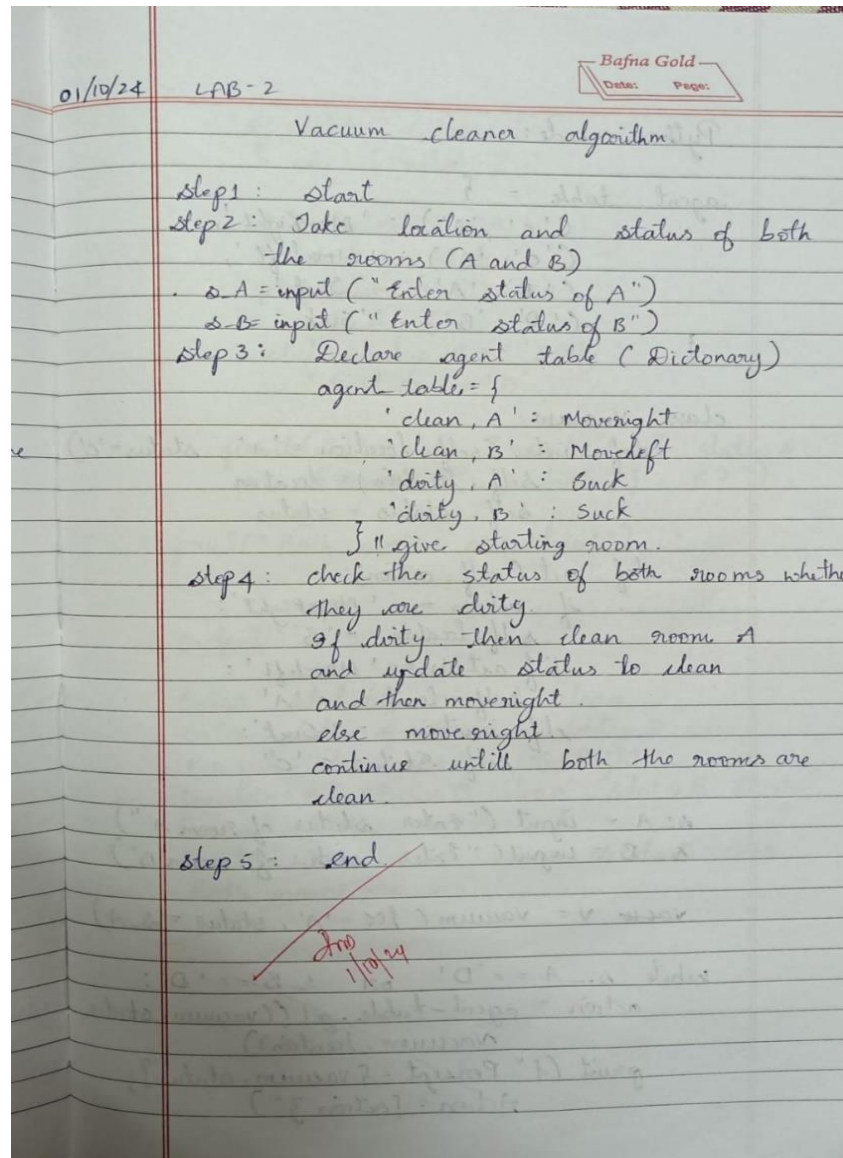 Bafna Gold
Date: Page:
01/10/24 LAB-2
Vacuum cleaner algorithm.
step1: start
step 2: Take location and status of both
the rooms (A and B)
s_A = input ("Enter status of A")
s_B= input ("Enter status of B")
step 3: Declare agent table (Dictonary)
agent table = {
'clean, A' : Moveright
'clean, B' : Moveleft
'dirty, A' : Suck
'dirty, B' : Suck
} " give starting room.
step 4: check the status of both rooms whethe
they are dirty.
If dirty then clean room A
and update status to clean
and then moveright.
else move right
continue untill both the rooms are
clean.
step 5: end
1/10/24